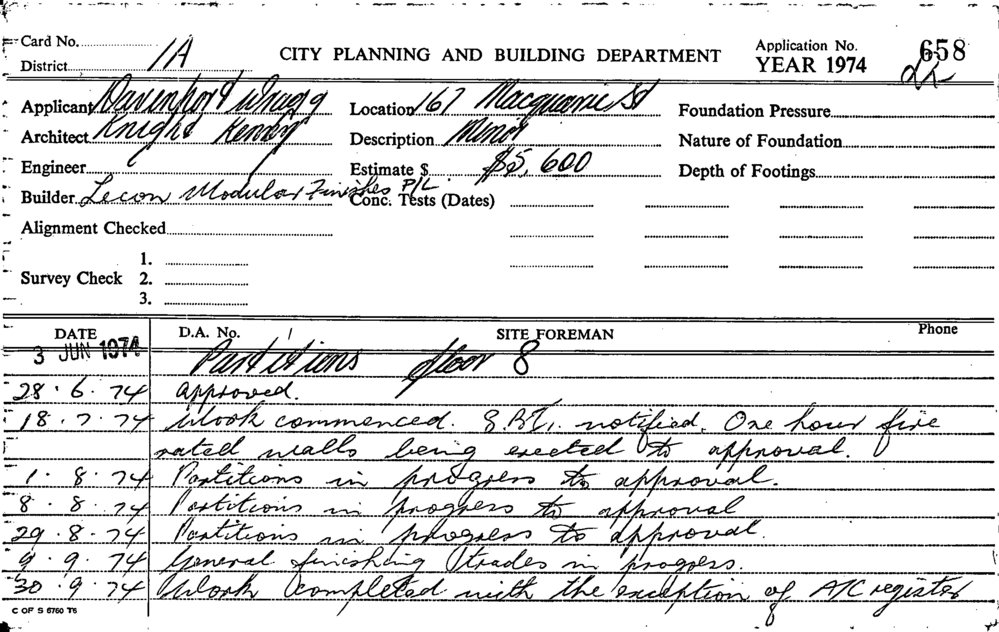 Card No.
District 1A
CITY PLANNING AND BUILDING DEPARTMENT
Application No. 658
YEAR 1974 22
Applicant Davenport Wragg
Location 167 Macquarie St
Foundation Pressure
Architect Knight Kenny
Description Minor
Nature of Foundation
Engineer
Estimate $ $5,600
Depth of Footings
Builder Lecon Modular Finishes P/L
Conc. Tests (Dates)
Alignment Checked
Survey Check
1.
2.
3.
DATE D.A. No. SITE FOREMAN Phone
3 JUN 1974 Partitions floor 8
28.6.74 approved.
18.7.74 Work commenced. notified. One hour fire
rated walls being erected to approval.
1.8.74 Partitions in progress to approval.
8.8.74 Partitions in progress to approval
29.8.74 Partitions in progress to approval.
9.9.74 General finishing trades in progress.
30.9.74 Work completed with the exception of A/C register
C OF S 6760 T6